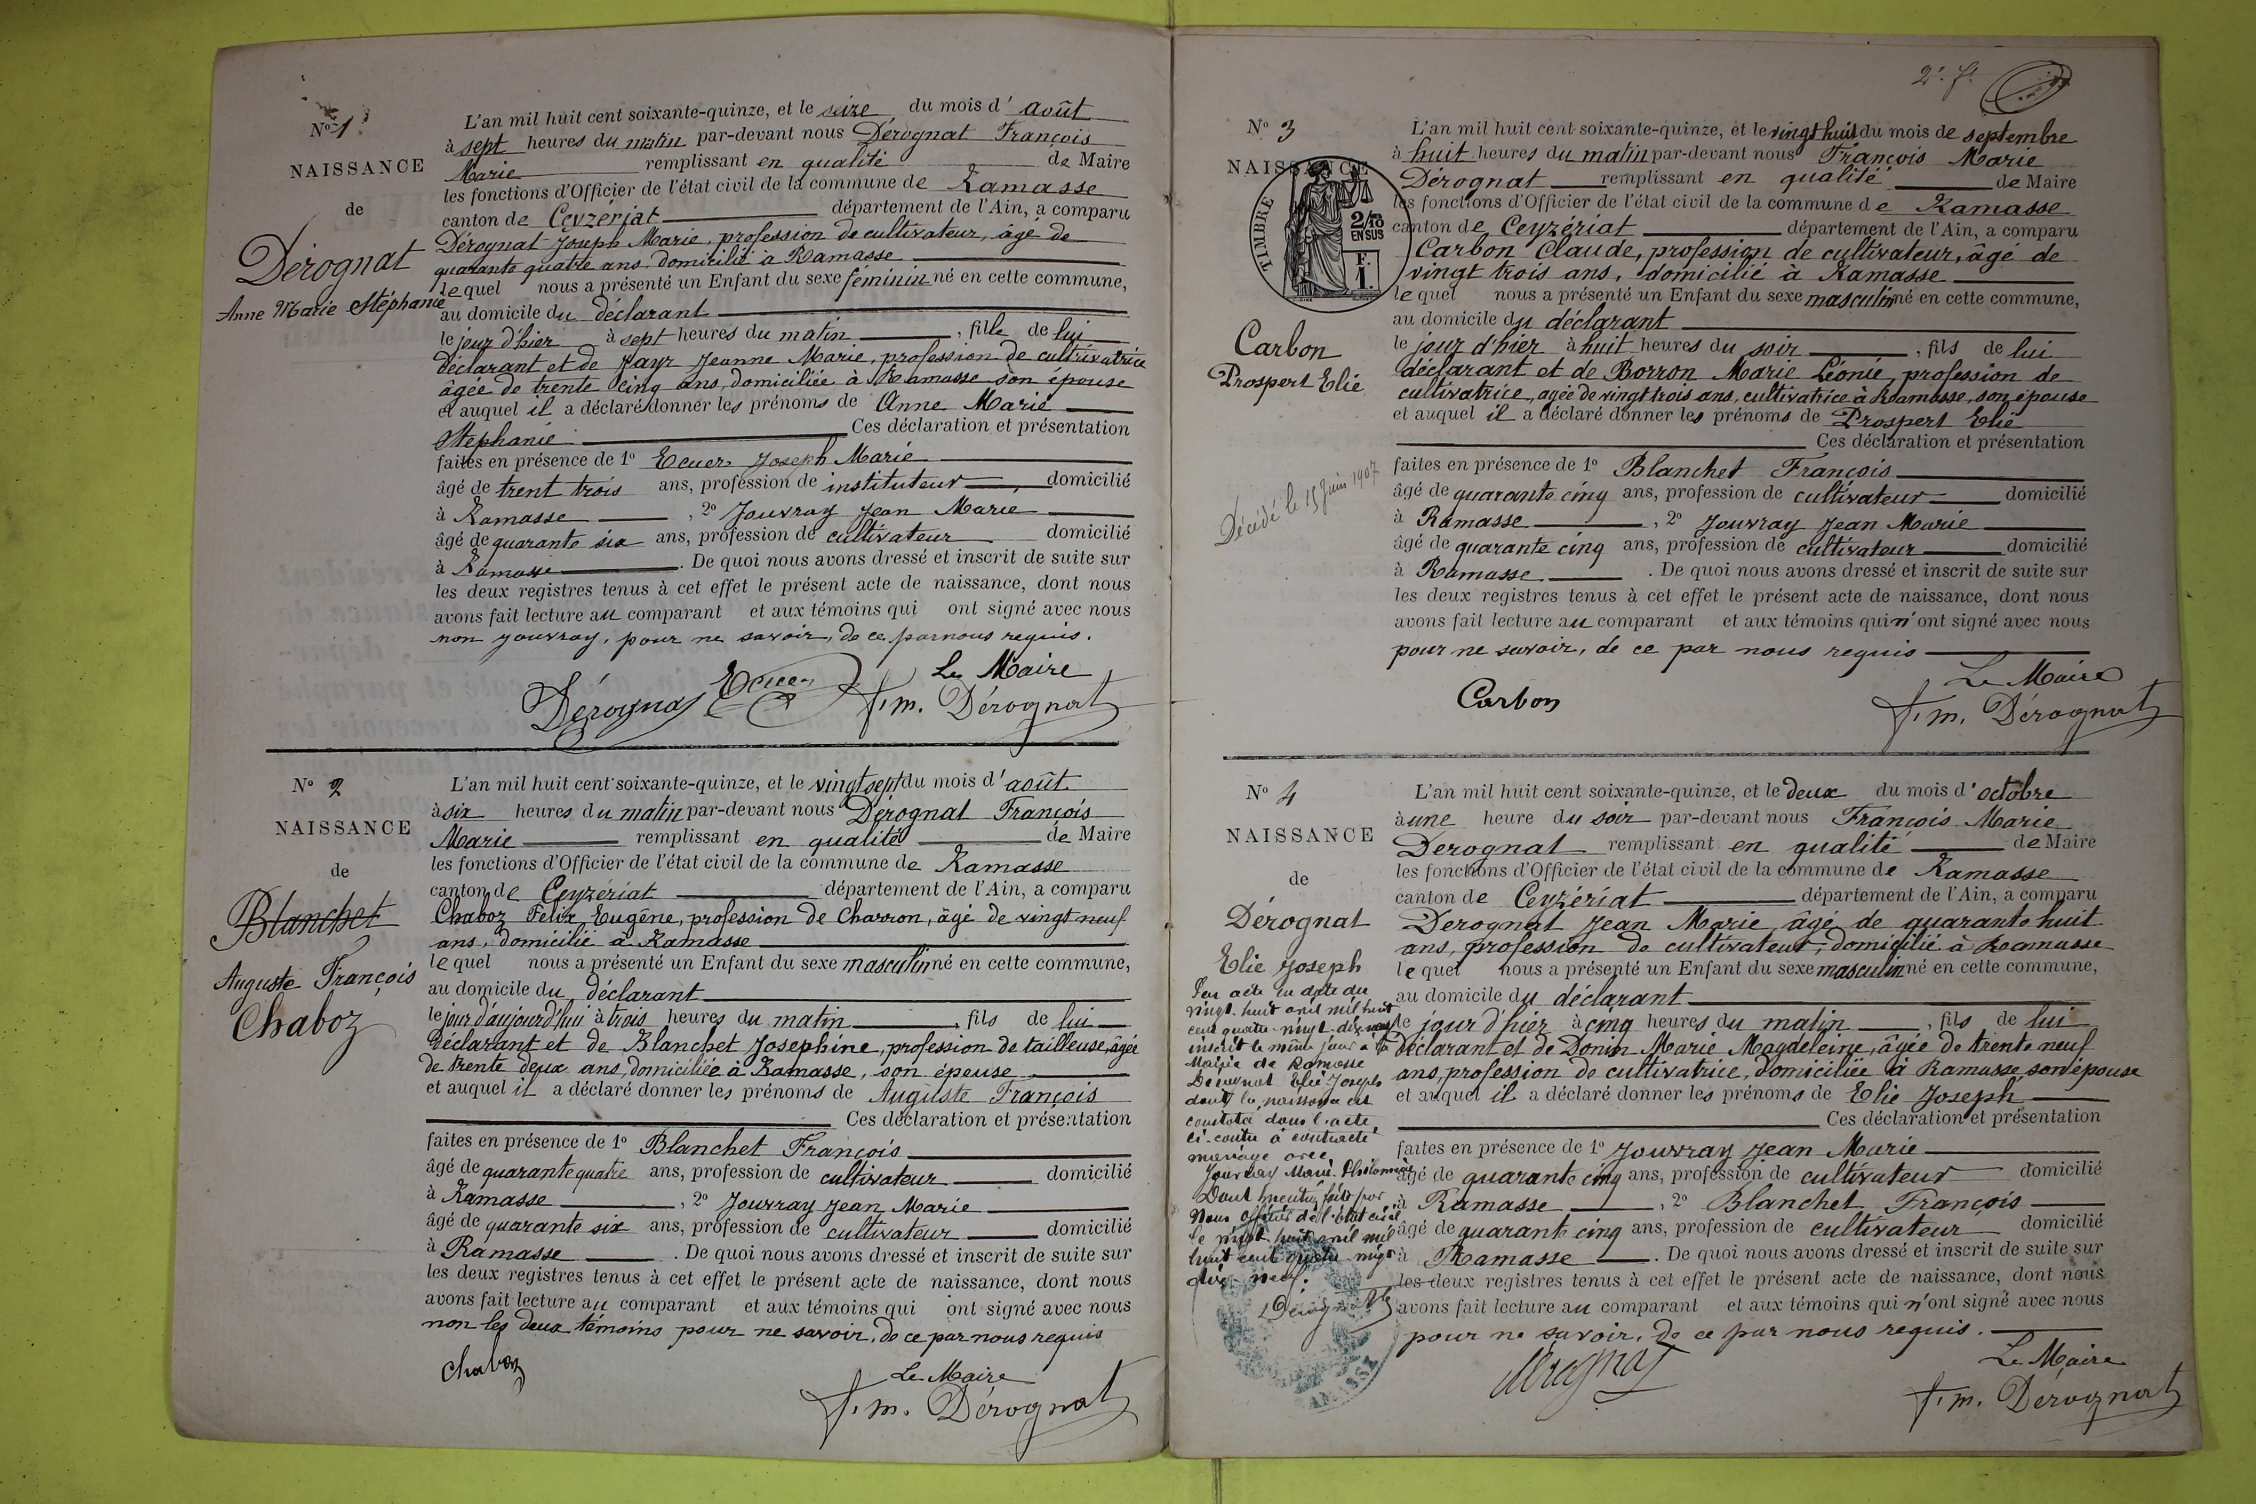 N° 1
NAISSANCE
de
Dérognat
Anne Marie Stéphanie
L'an mil huit cent soixante-quinze, et le seize du mois d'août
à sept heures du matin par-devant nous Dérognat François
Marie remplissant en qualité de Maire
les fonctions d'Officier de l'état civil de la commune de Ramasse
canton de Ceyzériat département de l'Ain, a comparu
Dérognat Joseph Marie, profession de cultivateur, âgé de
quarante quatre ans, domicilié à Ramasse
lequel nous a présenté un Enfant du sexe féminin né en cette commune,
au domicile du déclarant
le jour d'hier à sept heures du matin, fille de lui
déclarant et de Jeanne Marie, profession de cultivatrice
âgée de trente cinq ans, domiciliée à Ramasse son épouse
et auquel il a déclaré donner les prénoms de Anne Marie
Stéphanie Ces déclaration et présentation
faites en présence de 1° Ecuer Joseph Marie
âgé de trent trois ans, profession de instituteur, domicilié
à Ramasse, 2° Jouvray Jean Marie
âgé de quarante six ans, profession de cultivateur domicilié
à Ramasse. De quoi nous avons dressé et inscrit de suite sur
les deux registres tenus à cet effet le présent acte de naissance, dont nous
avons fait lecture au comparant et aux témoins qui ont signé avec nous
non Jouvray, pour ne savoir, de ce par nous requis.
Le Maire
Dérognat Ecuer f. m. Dérognat
N° 2
NAISSANCE
de
Blanchet
Auguste François
Chaboz
L'an mil huit cent soixante-quinze, et le vingt sept du mois d'août
à six heures du matin par-devant nous Dérognat François
Marie remplissant en qualité de Maire
les fonctions d'Officier de l'état civil de la commune de Ramasse
canton de Ceyzériat département de l'Ain, a comparu
Chaboz Felix Eugêne, profession de Charron, âgé de vingt neuf
ans, domicilié à Ramasse
lequel nous a présenté un Enfant du sexe masculin né en cette commune,
au domicile du déclarant
le jour d'aujourd'hui à trois heures du matin, fils de lui
déclarant et de Blanchet Josephine, profession de tailleuse, âgée
de trente deux ans, domiciliée à Ramasse, son épouse
et auquel il a déclaré donner les prénoms de Auguste François
Ces déclaration et présentation
faites en présence de 1° Blanchet François
âgé de quarante quatre ans, profession de cultivateur domicilié
à Ramasse, 2° Jouvray Jean Marie
âgé de quarante six ans, profession de cultivateur domicilié
à Ramasse. De quoi nous avons dressé et inscrit de suite sur
les deux registres tenus à cet effet le présent acte de naissance, dont nous
avons fait lecture au comparant et aux témoins qui ont signé avec nous
non les deux témoins pour ne savoir, de ce par nous requis
Chaboz
Le Maire
f. m. Dérognat
2e. ft
N° 3
NAISSANCE
TIMBRE
2/10
EN SUS
F.
1.
Carbon
Prospert Elie
Décédé le 15 juin 1907
L'an mil huit cent soixante-quinze, et le vingt huit du mois de septembre
à huit heures du matin par-devant nous François Marie
Dérognat remplissant en qualité de Maire
les fonctions d'Officier de l'état civil de la commune de Ramasse
canton de Ceyzériat département de l'Ain, a comparu
Carbon Claude, profession de cultivateur, âgé de
vingt trois ans, domicilié à Ramasse
lequel nous a présenté un Enfant du sexe masculin né en cette commune,
au domicile du déclarant
le jour d'hier à huit heures du soir, fils de lui
déclarant et de Borron Marie Léonie, profession de
cultivatrice, agée de vingt trois ans, cultivatrice à Ramasse, son épouse
et auquel il a déclaré donner les prénoms de Prospert Elie
Ces déclaration et présentation
faites en présence de 1° Blanchet François
âgé de quarante cinq ans, profession de cultivateur domicilié
à Ramasse, 2° Jouvray Jean Marie
âgé de quarante cinq ans, profession de cultivateur domicilié
à Ramasse. De quoi nous avons dressé et inscrit de suite sur
les deux registres tenus à cet effet le présent acte de naissance, dont nous
avons fait lecture au comparant et aux témoins qui n'ont signé avec nous
pour ne savoir, de ce par nous requis
Le Maire
Carbon f. m. Dérognat
N° 4
NAISSANCE
de
Dérognat
Elie Joseph
Par acte en date du
vingt huit avril mil huit
cent quatre-vingt-dix neuf
inscrit le même jour à la
Mairie de Ramasse
Derognat Elie Joseph
dont la naissance est
constatée dans l'acte
ci-contre à contracté
mariage avec
Jouvray Marie Philomène
Dont mention faite par
Nous officier de l'état civil
le vingt huit avril mil
huit cent quatre vingt
dix-neuf.
Dérognat
L'an mil huit cent soixante-quinze, et le deux du mois d'octobre
à une heure du soir par-devant nous François Marie
Dérognat remplissant en qualité de Maire
les fonctions d'Officier de l'état civil de la commune de Ramasse
canton de Ceyzériat département de l'Ain, a comparu
Derognat Jean Marie, âgé de quarante huit
ans, profession de cultivateur, domicilié à Ramasse
lequel nous a présenté un Enfant du sexe masculin né en cette commune,
au domicile du déclarant
le jour d'hier à cinq heures du matin, fils de lui
déclarant et de Donin Marie Magdeleine, âgée de trente neuf
ans, profession de cultivatrice, domiciliée à Ramasse, son épouse
et auquel il a déclaré donner les prénoms de Elie Joseph
Ces déclaration et présentation
faites en présence de 1° Jouvray Jean Marie
âgé de quarante cinq ans, profession de cultivateur domicilié
à Ramasse, 2° Blanchet François
âgé de quarant cinq ans, profession de cultivateur domicilié
à Ramasse. De quoi nous avons dressé et inscrit de suite sur
les deux registres tenus à cet effet le présent acte de naissance, dont nous
avons fait lecture au comparant et aux témoins qui n'ont signé avec nous
pour ne savoir, de ce par nous requis.
Le Maire
f. m. Dérognat